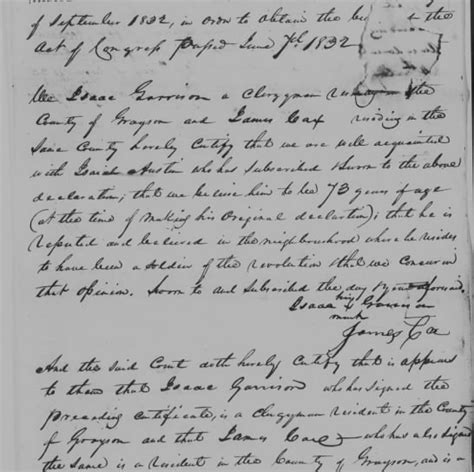 of September 1832, in order to obtain the be the
Act of Congress passed June 7th 1832
We Isaac Garrison a Clergyman residing in the
County of Grayson and James Cax residing in the
Same County hereby Certify that we are well acquainted
with Isaiah Austin who has subscribed & sworn to the above
declaration; that we believe him to be 73 years of age
(at the time of making his original declaration); that he is
reputed and believed in the neighbourhood where he resides
to have been a soldier of the revolution & that we concur in
that opinion. Sworn to and Subscribed the day & year aforesaid.
Isaac his x Garrison
mark
James Cox
And the said Court doth hereby Certify that it appears
to them that Isaac Garrison who has signed the
preceding certificate, is a Clergyman resident in the County
of Grayson and that James Cox who has also signed
the same is a resident in the County of Grayson, and is a